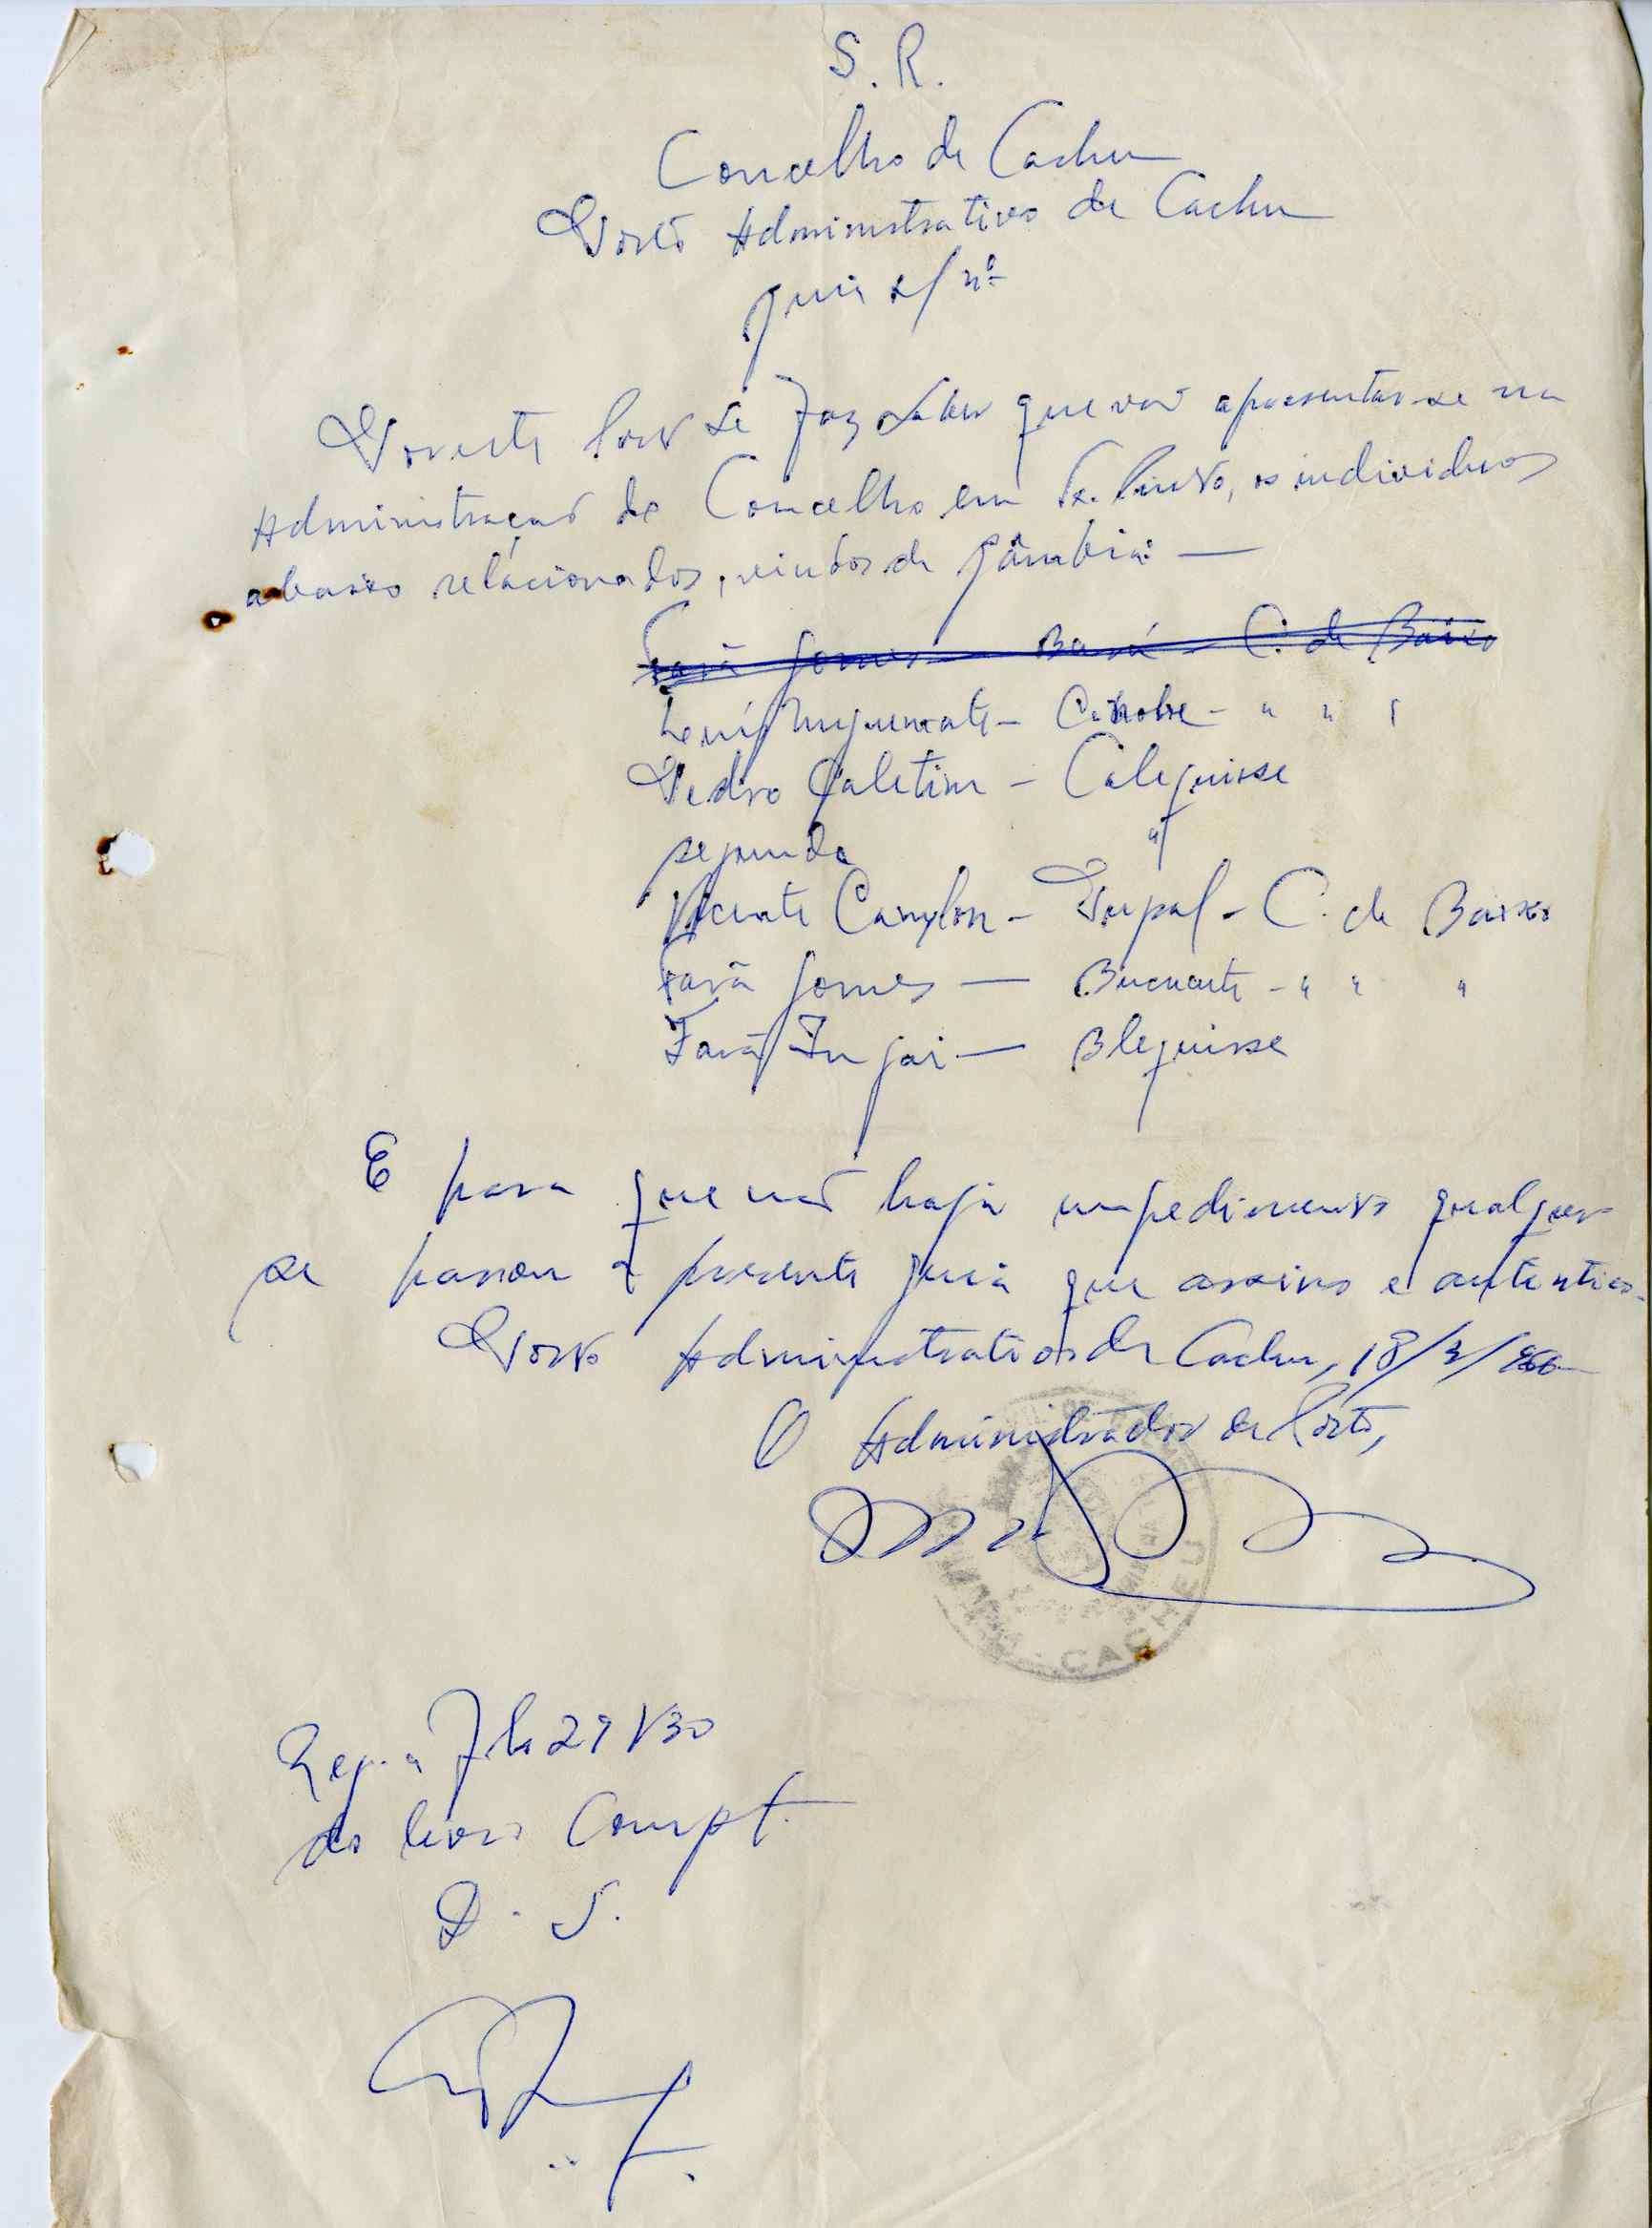 S. R.
Concelho de Cacheu
Posto Administrativo de Cacheu
Guia s/nº
Por este Posto se faz saber que vão apresentar-se na
Administração do Concelho em Tx. Pinto, os individuos
abaixo relacionados, vindos de Gâmbia: —
Farã Gomes — Bará - C. de Baixo
- " " "
Pedro Galetim - Calequisse
segunda "
Vicente - - C. de Baixo
Farã Gomes — - " " "
Farã — Blequisse
E para que não haja impedimento qualquer
se passou a presente guia que assino e autentico.
Posto Administrativo de Cacheu, 18/
O Administrador de Posto,
CACHEU
Reg. a fls 29 V 30
do livro Compt.
D. S.